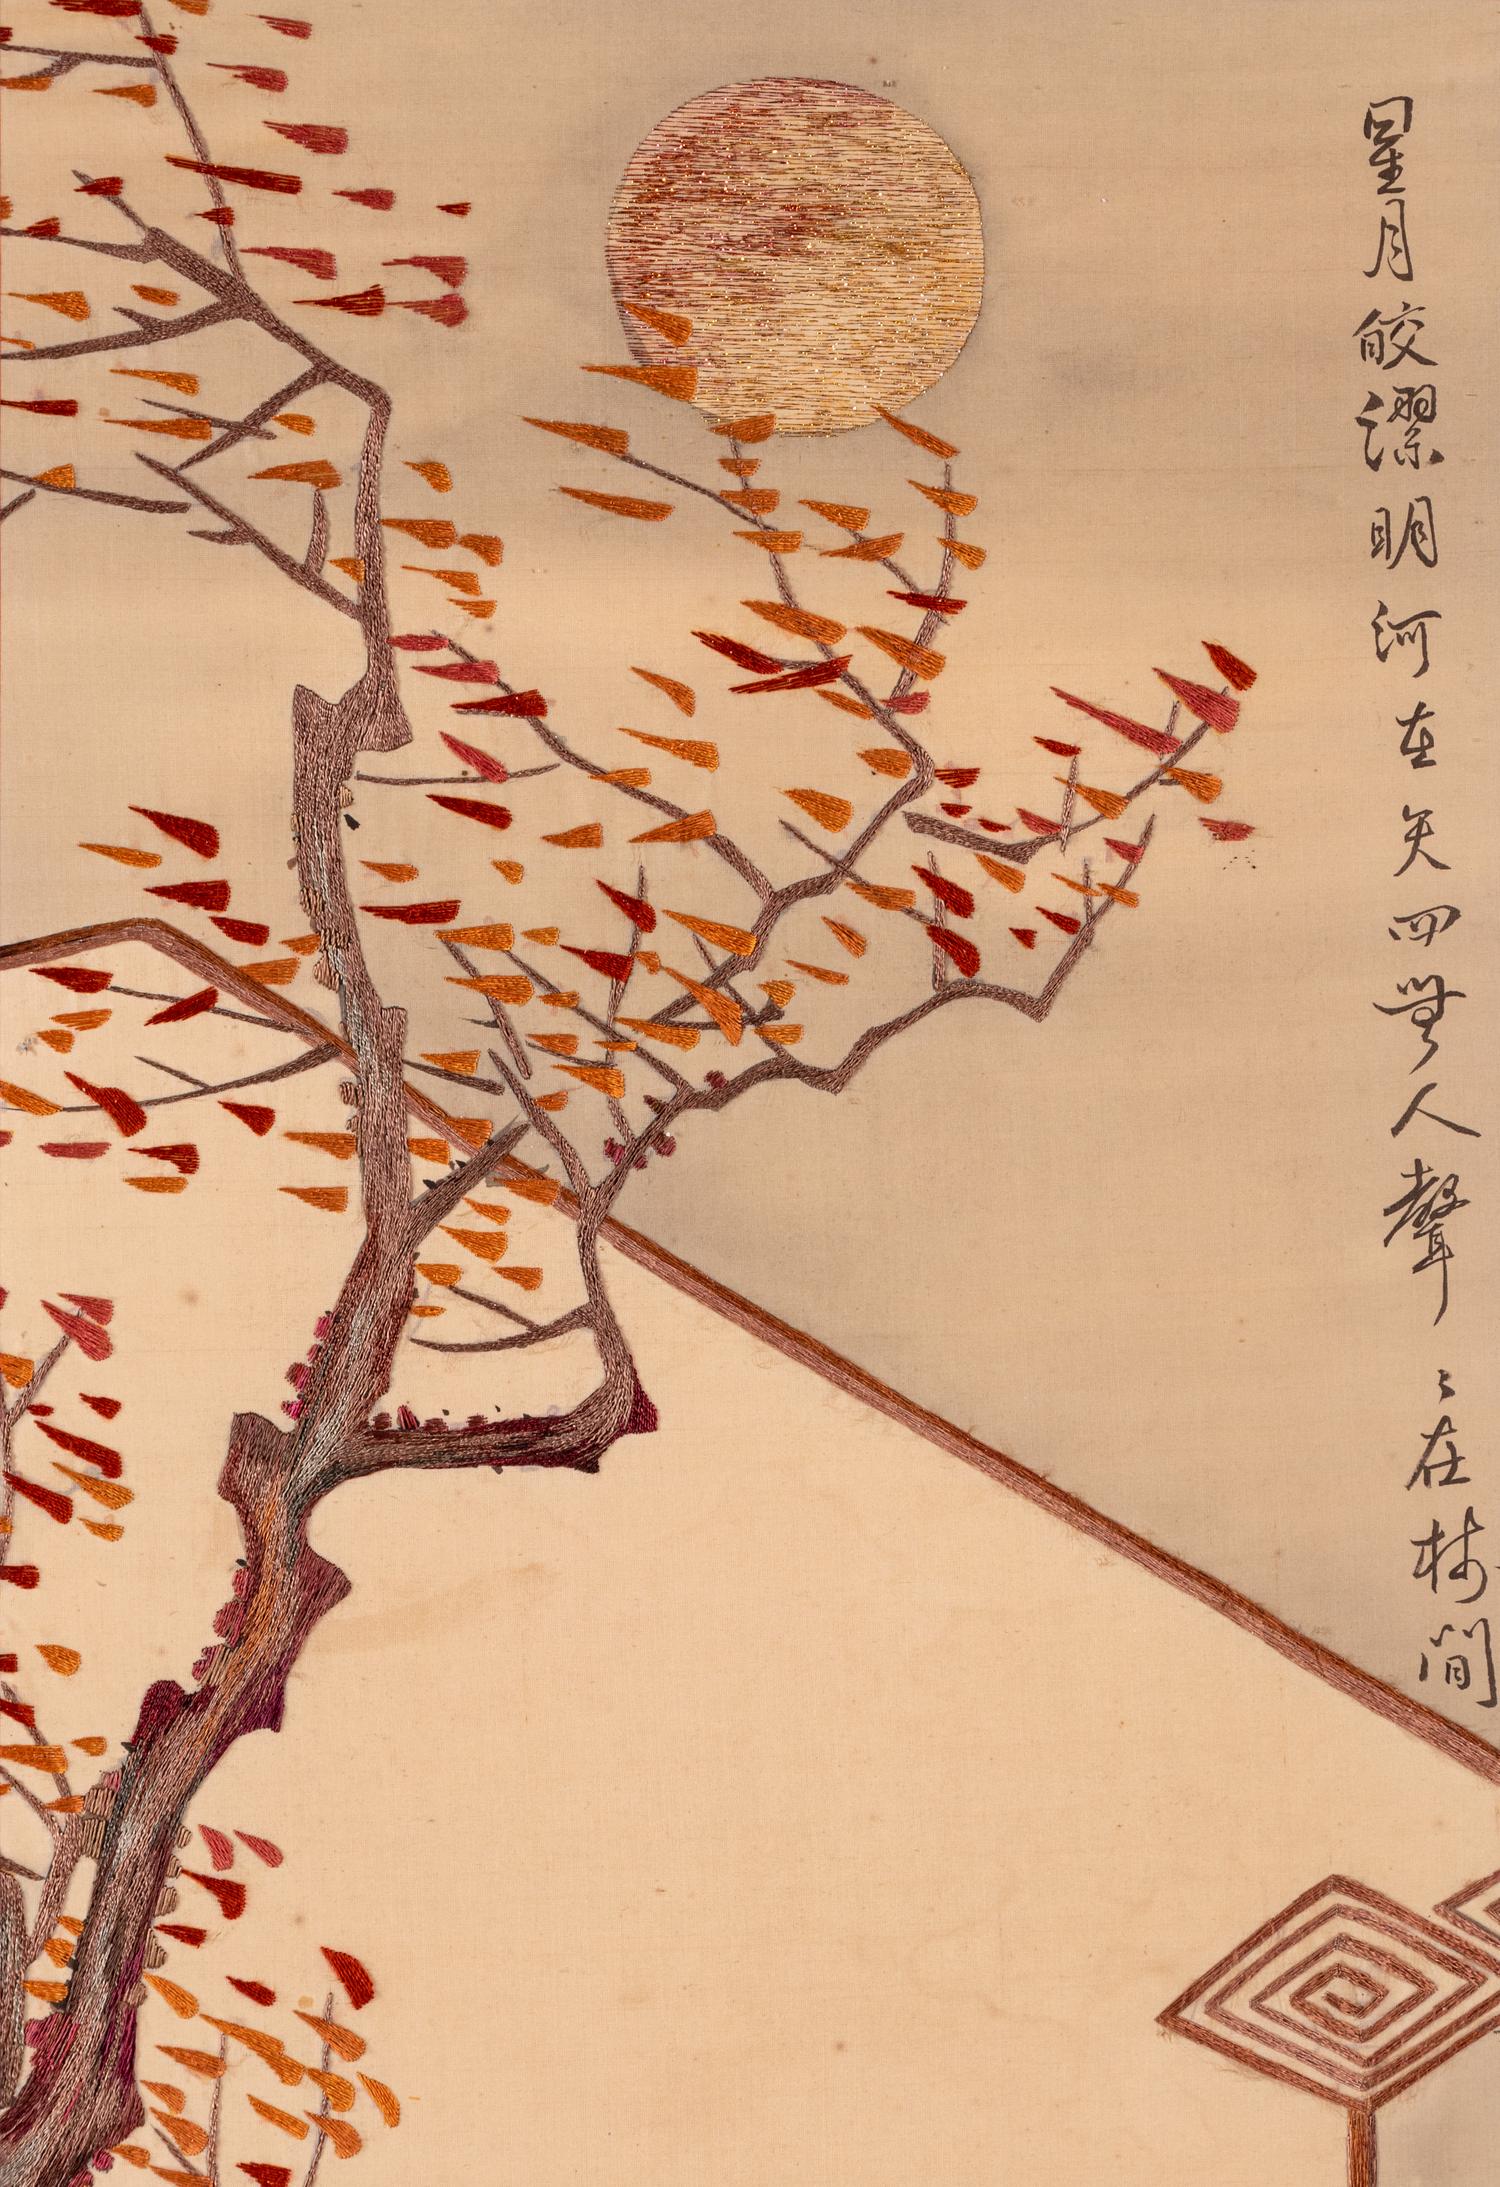 星月皎潔明河在天四無人聲〻在樹間